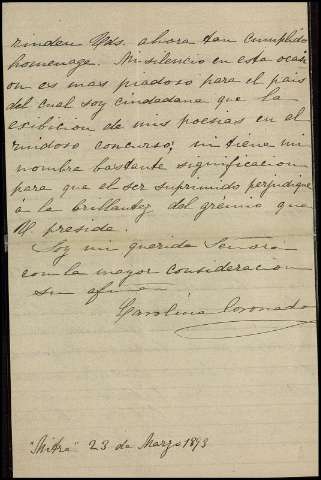 rinden Uds. ahora tan cumplido
homenage. Mi silencio en esta ocasi
on es mas piadoso para el pais
del cual soy ciudadana que la
esibicion de mis poesias en al
ruidoso concurso; ni tiene mi
nombre bastante significacion
para que el ser suprimido perjudique
á la brillantez del grémio que
U. preside.
Soy mi querida Señora
con la mayor consideracion
su afma
Carolina Coronado
"Mitra" 23 de Marzo 1893